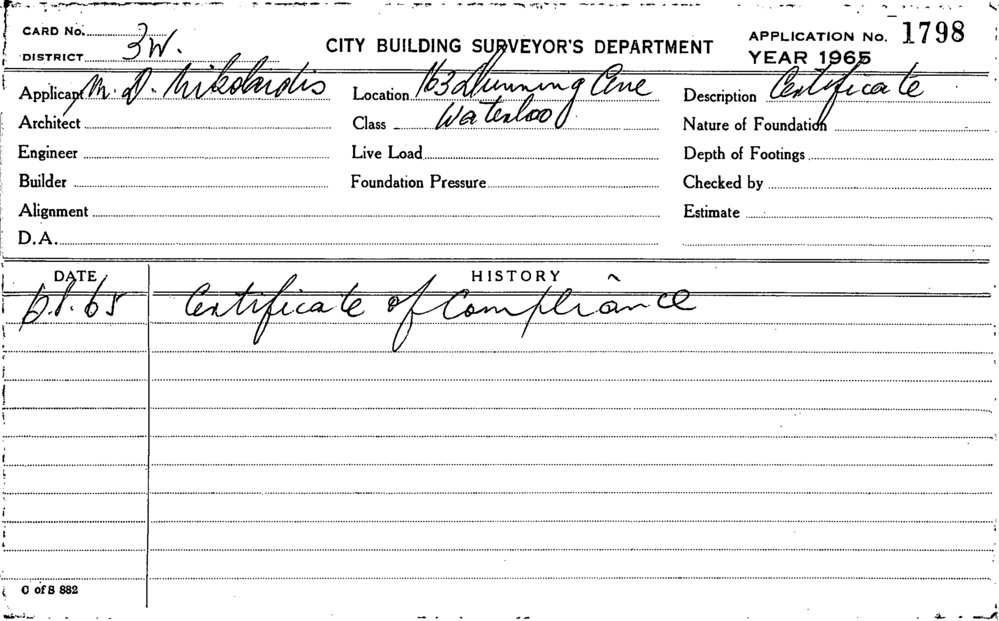 CARD No.
DISTRICT 3W.
CITY BUILDING SURVEYOR'S DEPARTMENT
APPLICATION No. 1798
YEAR 1965
Applicant M. D. Location 163 Dunning Ave Description Certificate
Architect Class Waterloo Nature of Foundation
Engineer Live Load Depth of Footings
Builder Foundation Pressure Checked by
Alignment Estimate
D.A.
DATE HISTORY
6.8.65 Certificate of Compliance
C of S 882